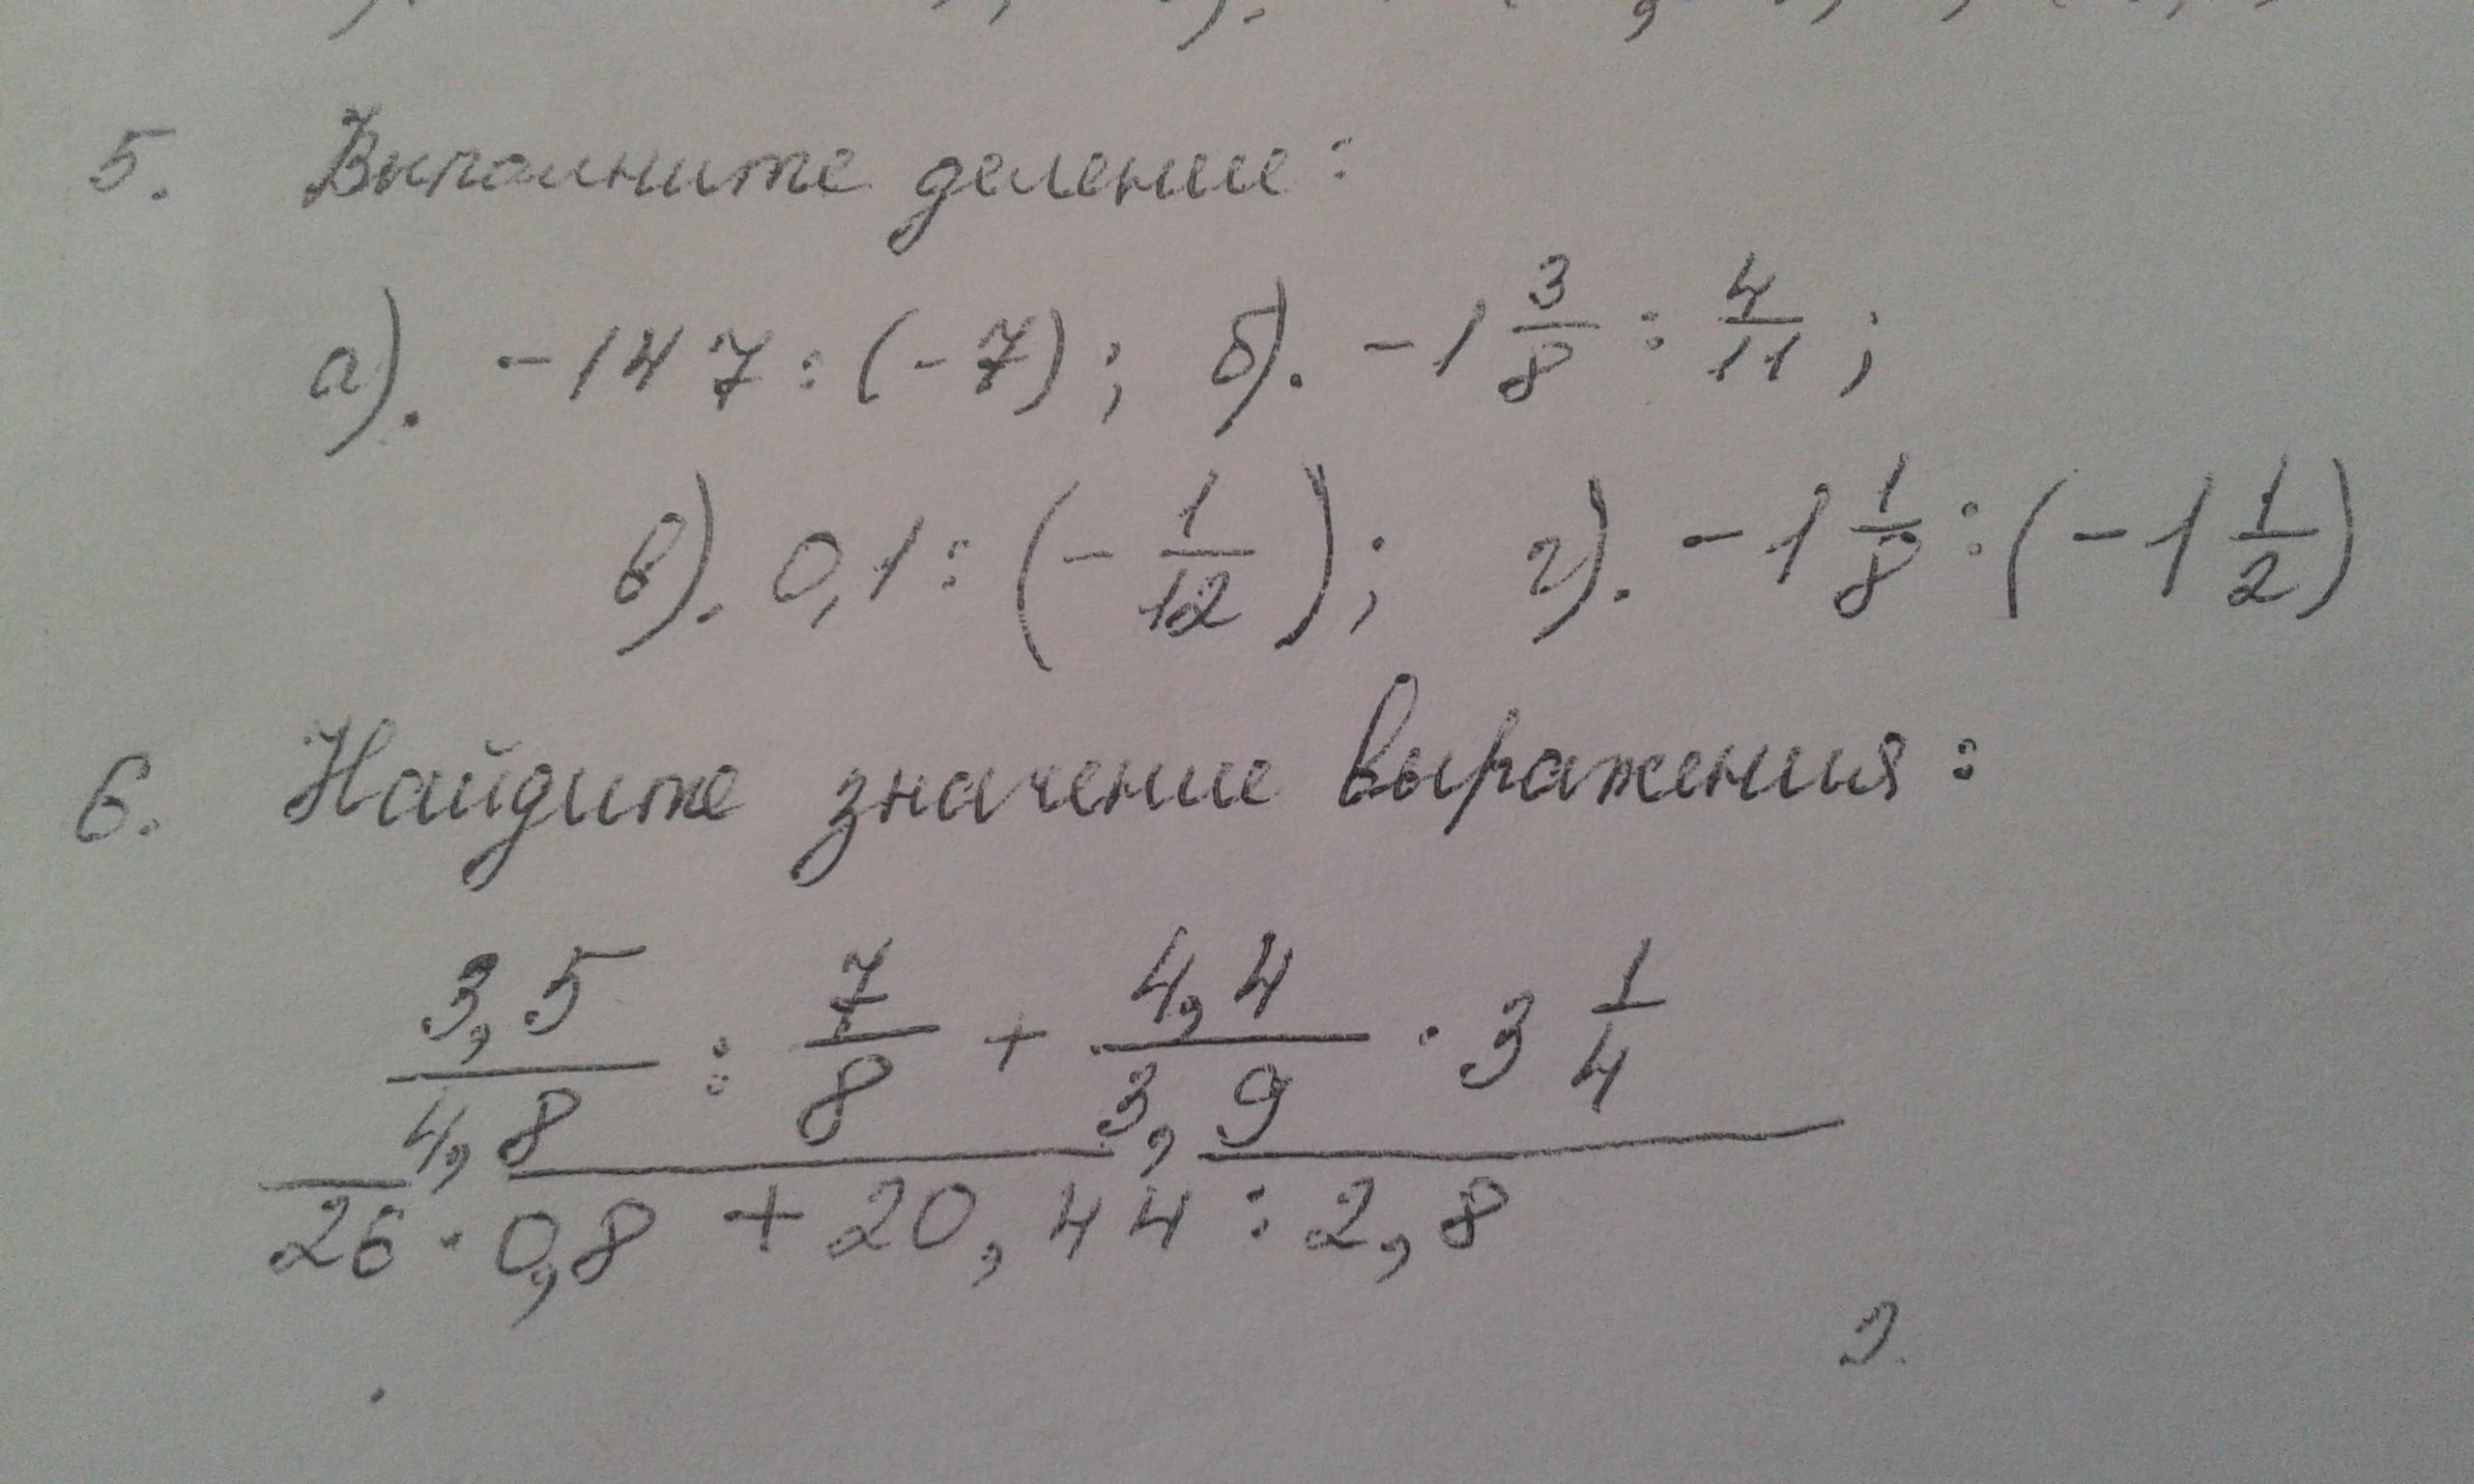 5. Выполните деление:
а). -147:(-7); б). -1 3/8 : 4/11;
в). 0,1:(-1/12); г). -1 1/8:(-1 1/2)
6. Найдите значение выражения:
3,5/4,8 : 7/8 + 4,4/3,9 · 3 1/4
26·0,8 + 20,44:2,8